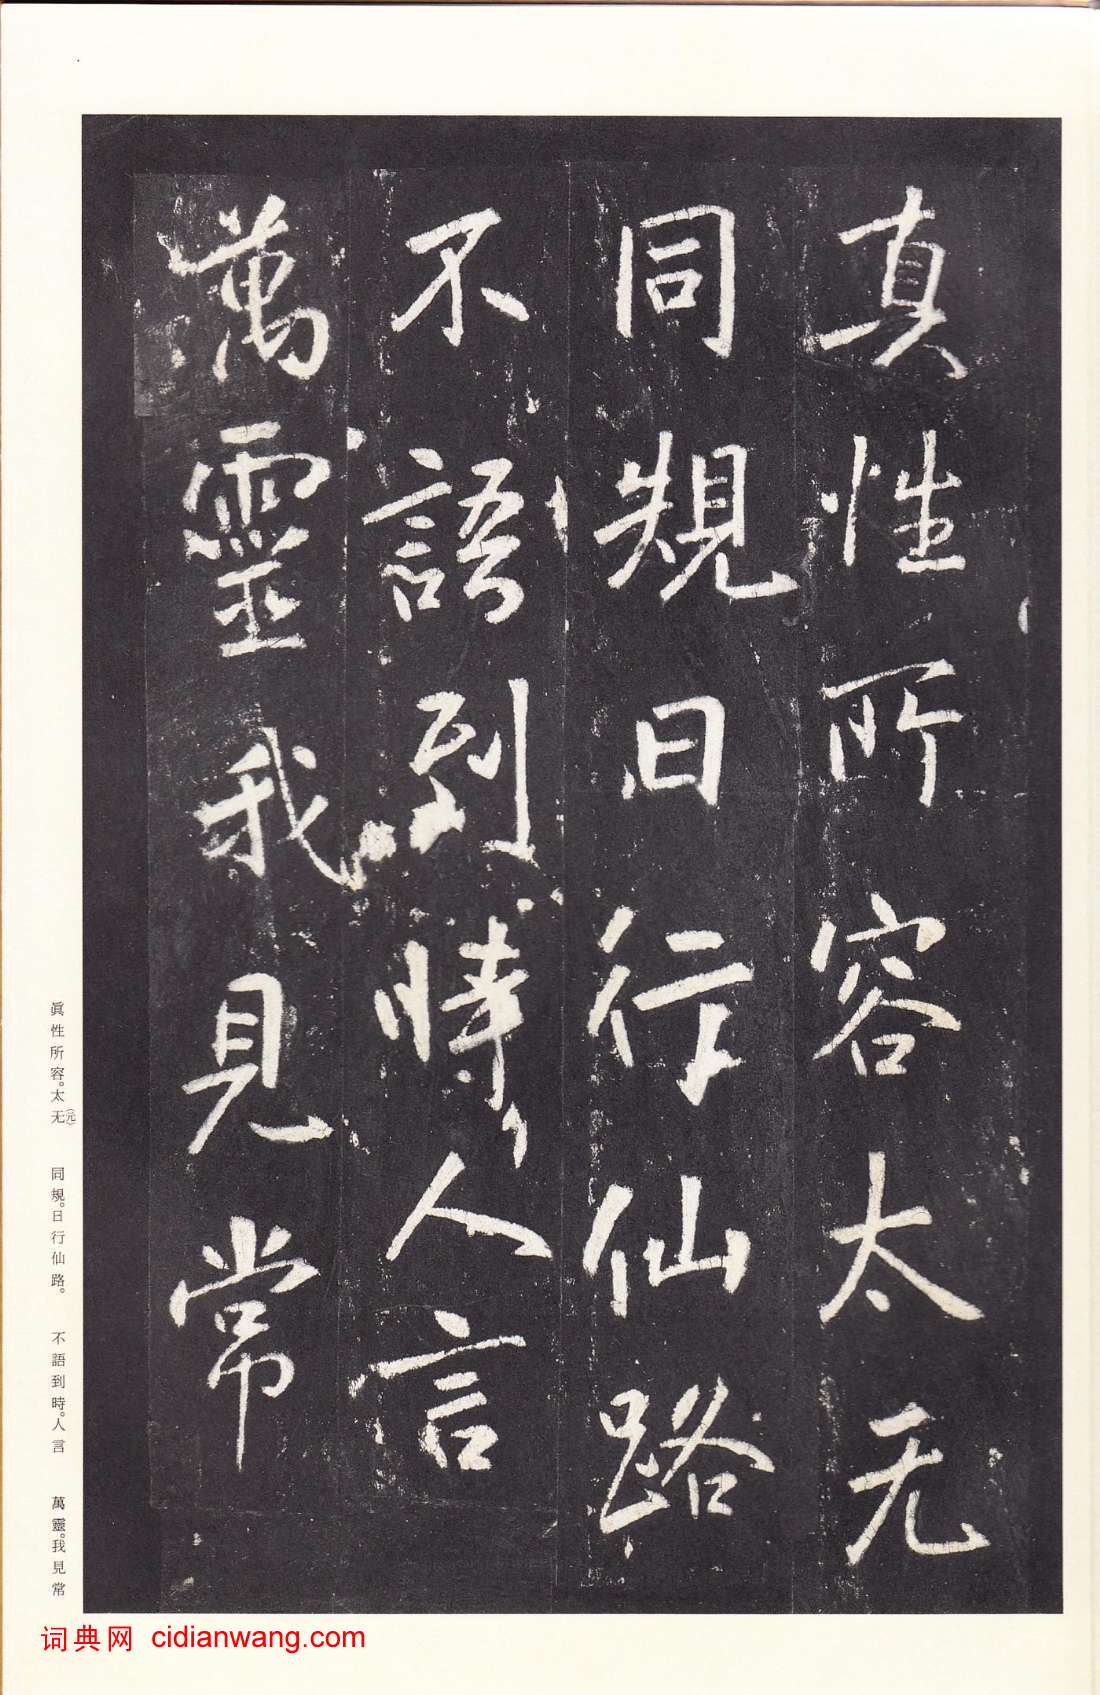 真性所容太无
同規日行仙路
不語到時人言
萬靈我見常
眞性所容。太无(元) 同規。日行仙路。 不語到時。人言 萬靈。我見常
词典网 cidianwang.com